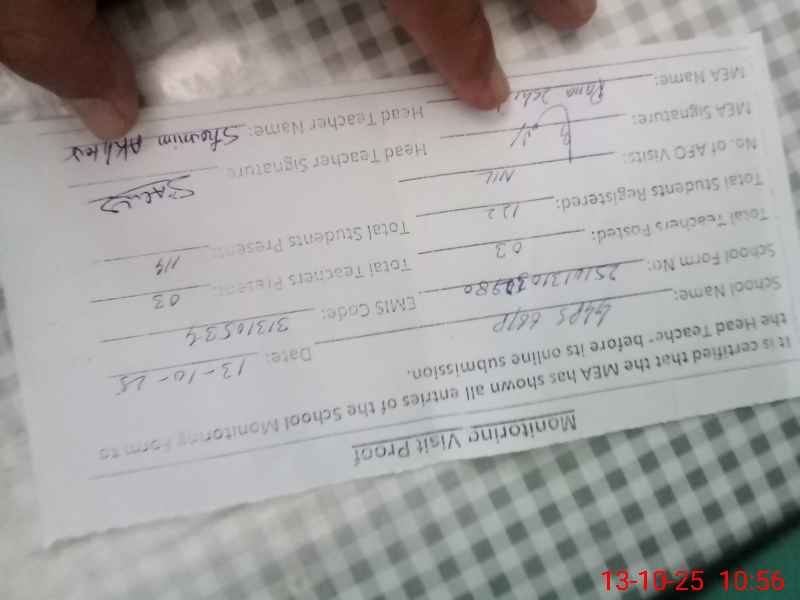 Monitoring Visit Proof
It is certified that the MEA has shown all entries of the School Monitoring Form to
the Head Teacher before its online submission.
School Name: GGPS 66/P Date: 13-10-25
School Form No: EMIS Code: 31310534
Total Teachers Posted: 03 Total Teachers Present: 03
Total Students Registered: 122 Total Students Present: 114
No. of AEO Visits: NIL
MEA Signature: Head Teacher Signature
MEA Name: Rana Head Teacher Name: Shamim Akhter
13-10-25 10:56